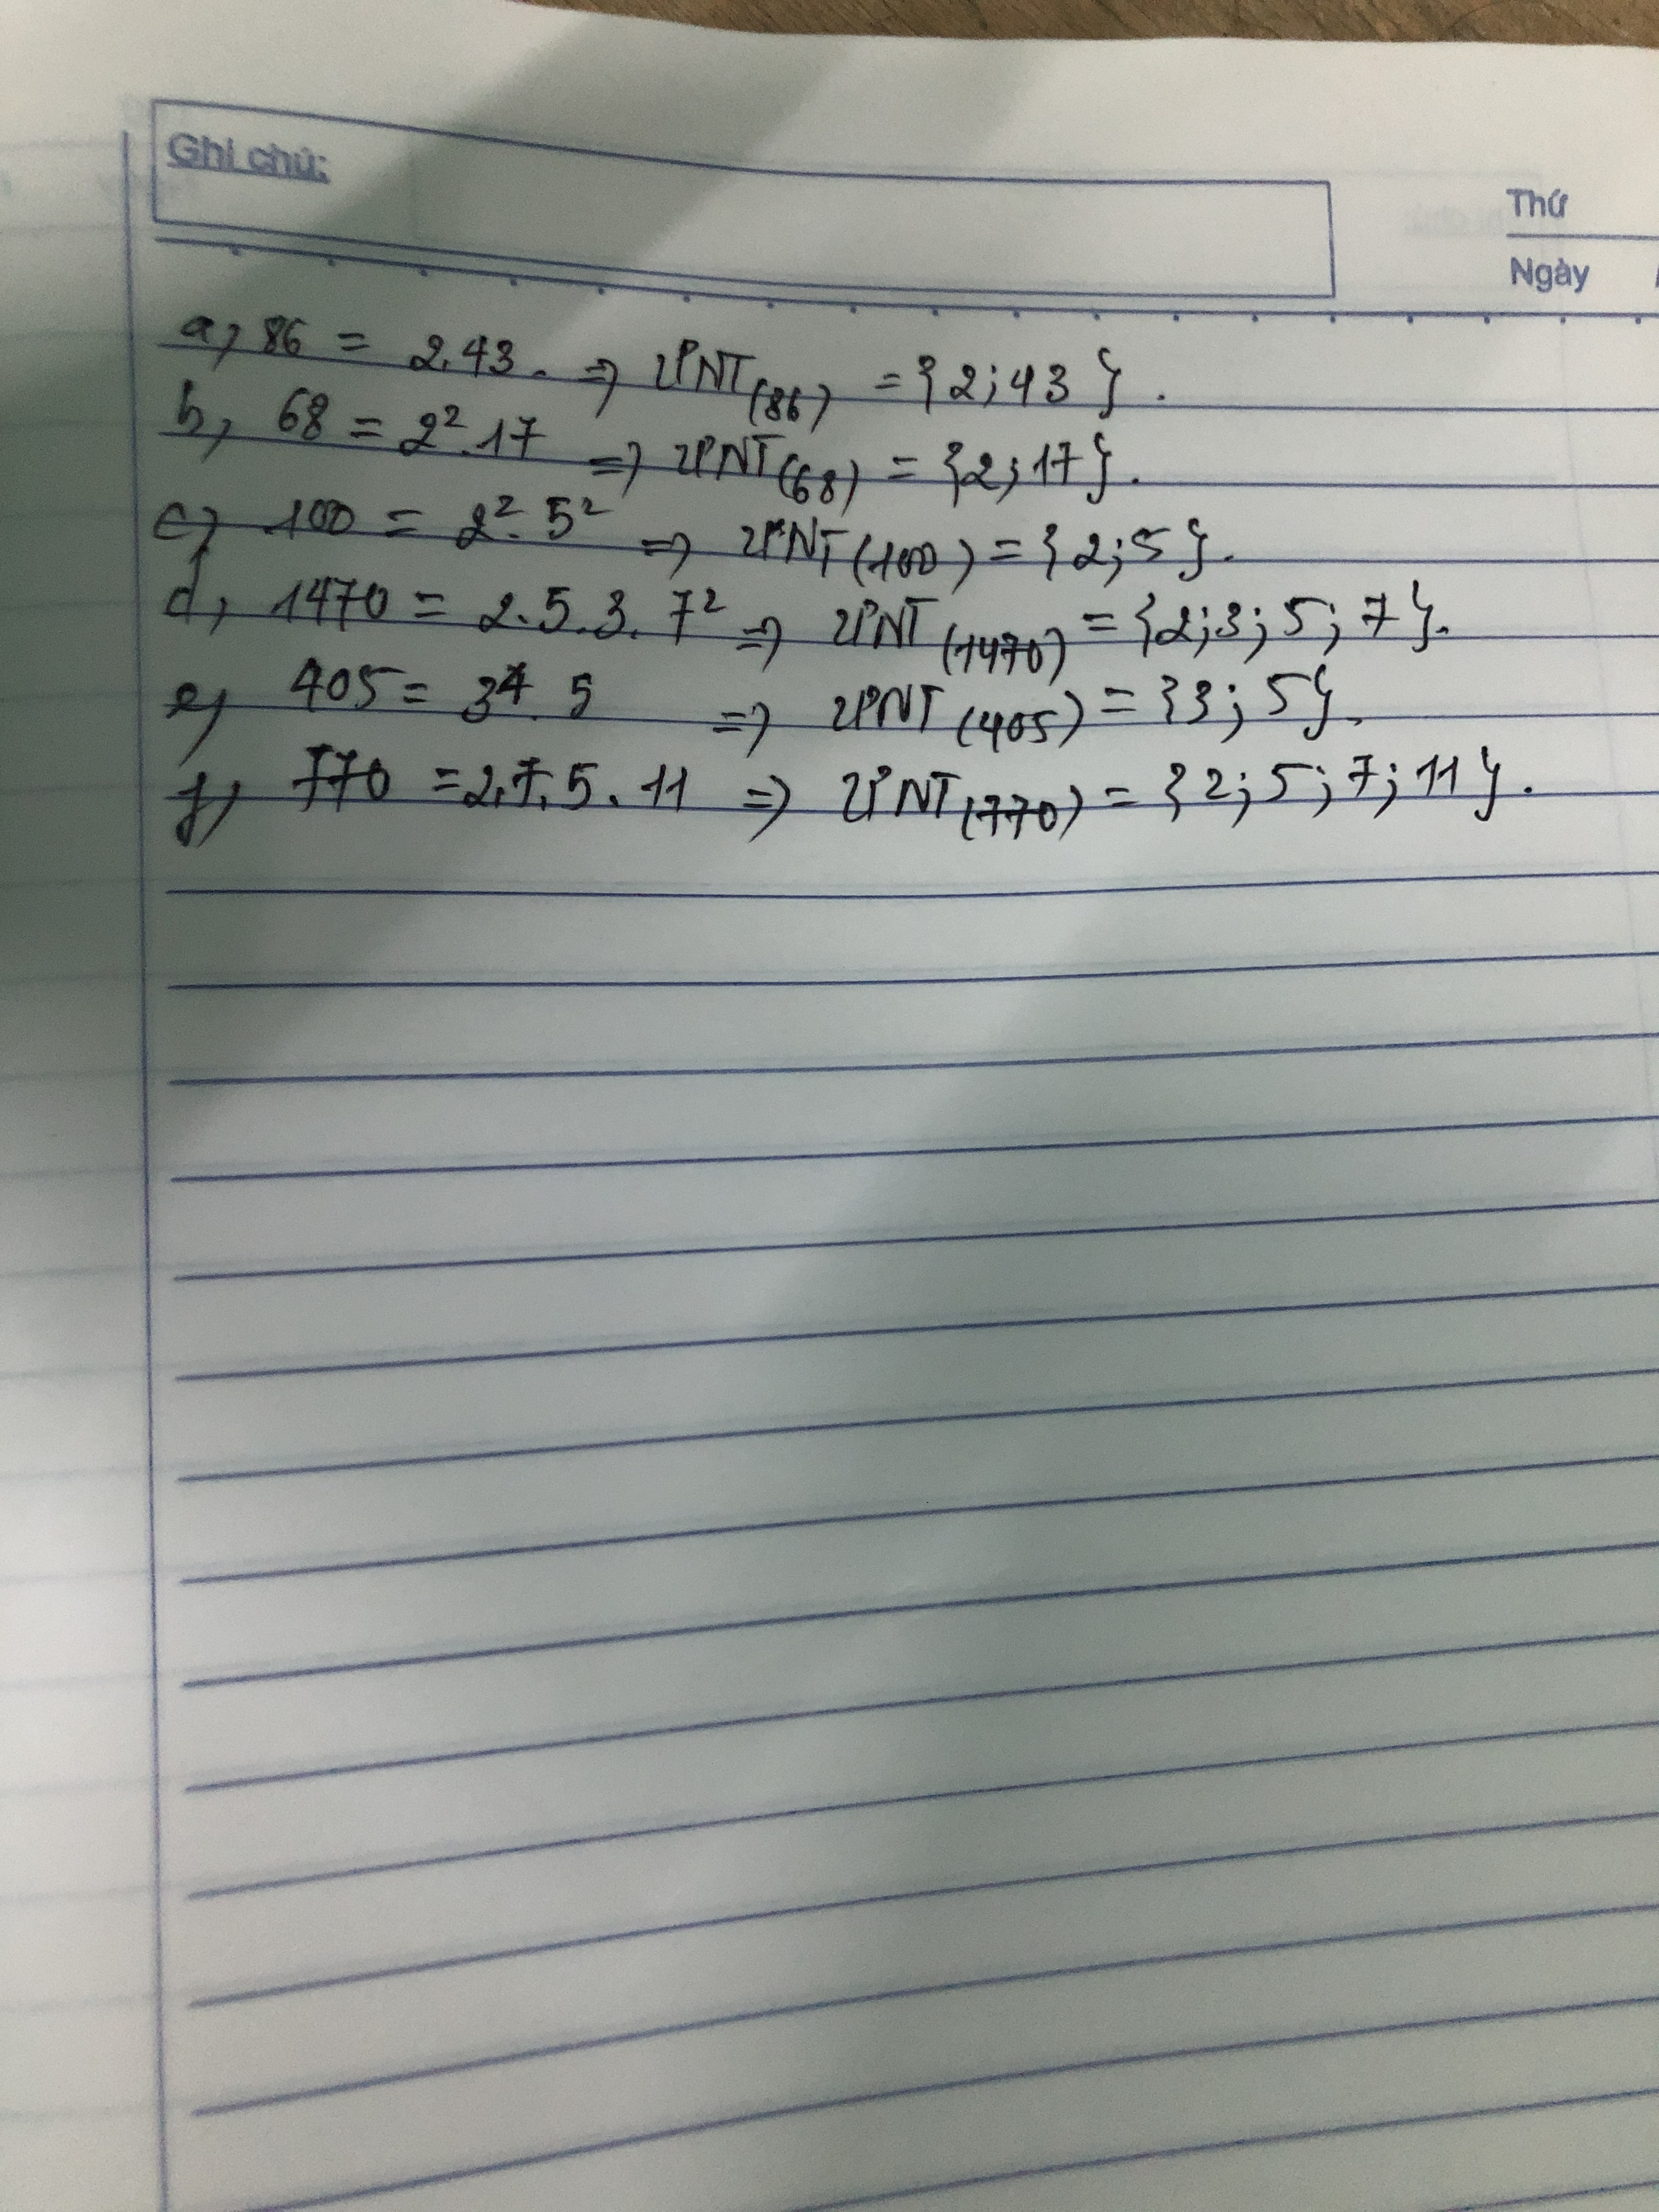 Ghi chú:
Thứ
Ngày
a, 86 = 2.43. => ƯPNT(86) = {2;43}.
b, 68 = 2².17 => ƯPNT(68) = {2;17}.
c, 100 = 2².5² => ƯPNT(100) = {2;5}.
d, 1470 = 2.5.3.7² => ƯPNT(1470) = {2;3;5;7}.
e, 405 = 3⁴.5 => ƯPNT(405) = {3;5}.
f, 770 = 2.7.5.11 => ƯPNT(770) = {2;5;7;11}.